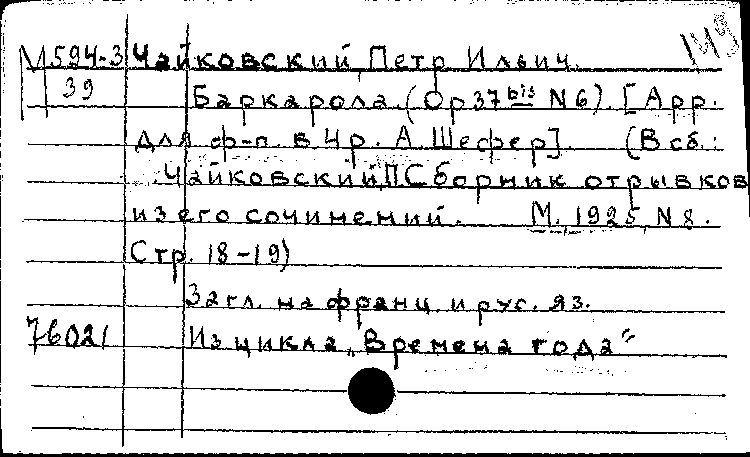 149
М594-3 Чайковский, Петр Ильич.
39 Баркарола. (Op 37 bis N 6). [Арр.
для ф-п. в 4 р. А. Шефер]. (В сб.:
Чайковский, П. Сборник отрывков
из его сочинений. М. 1925, N 8.
Стр. 18-19)
Загл. на франц. и рус. яз.
76021 Из цикла „Времена года"